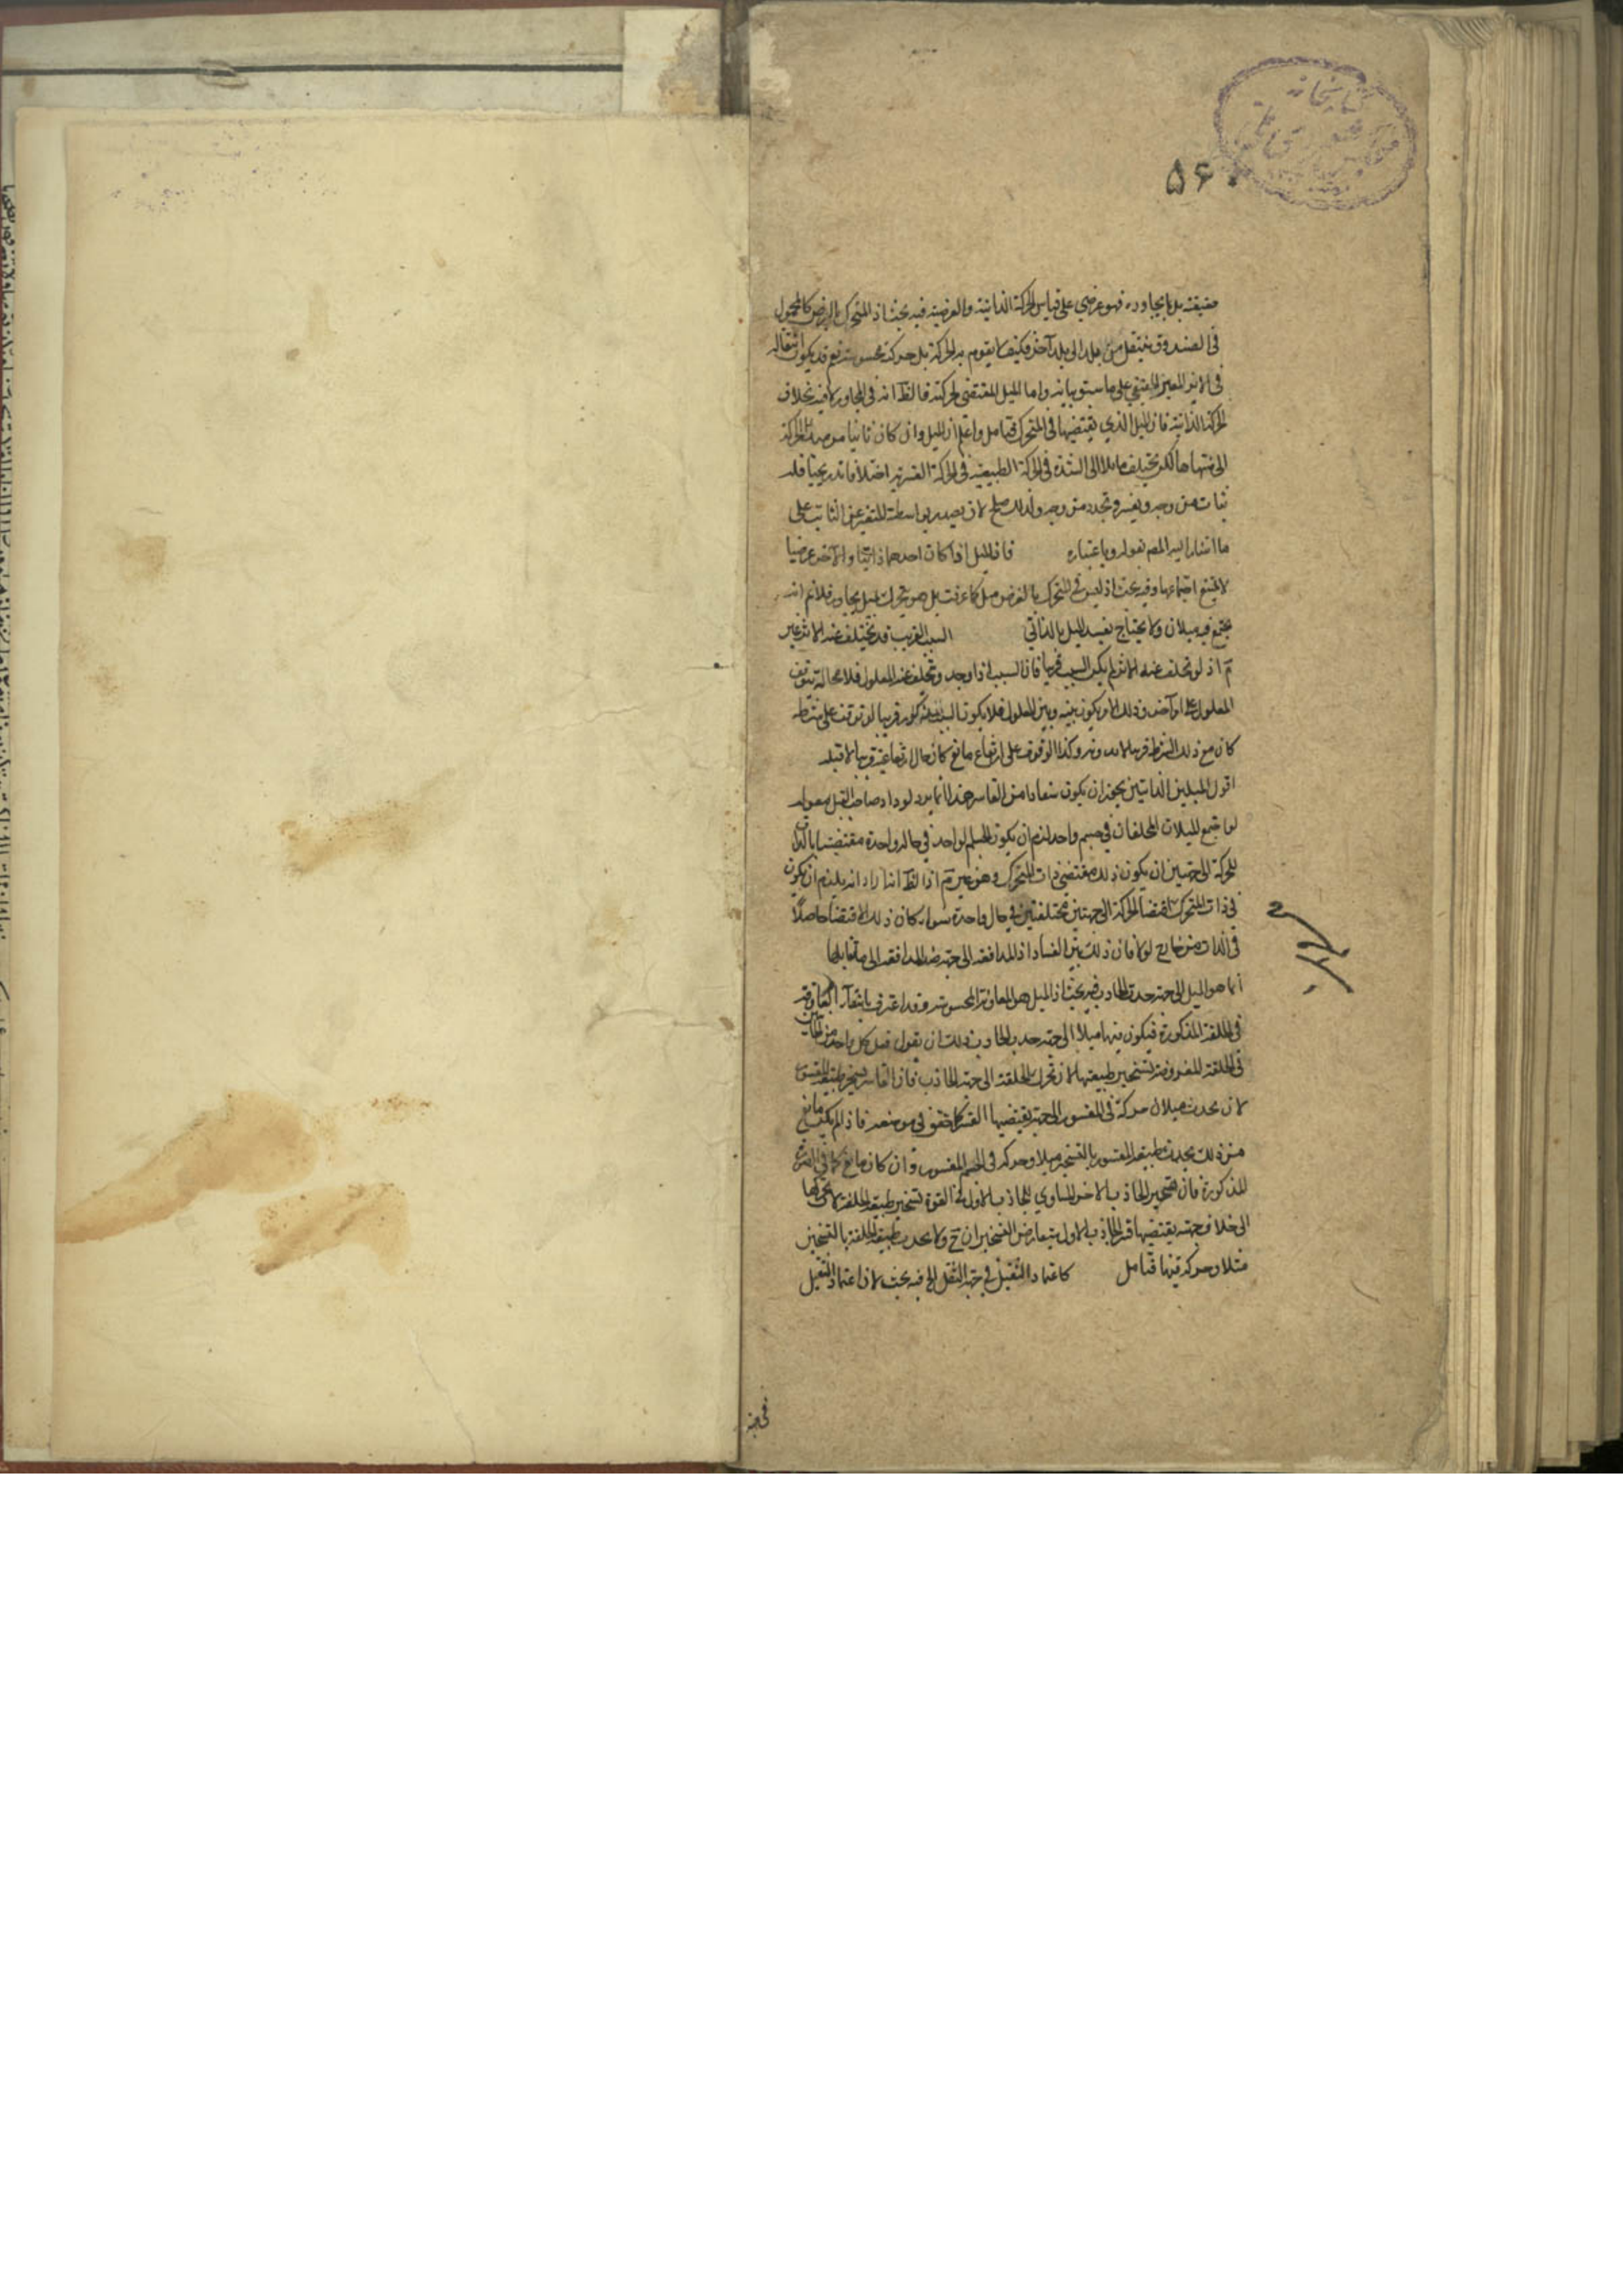 كتابخانه
۵۶۰
حقيقة بل بما يجاوره فهو عرضي على قياس الحركة الذاتية والعرضية فيه بحث اذ المتحرك بالعرض كالمحمول
في الصندوق ينتقل من بلد الى بلد آخر فكيف لا يقوم به الحركة بل حركته محسوسة نعم قد يكون انتقاله
في الاين المعين الحقيقي على ما ستوبيانه واما الميل المقتضي لحركته فالظ انه في المجاور لا فيه بخلاف
الحركة الذاتية فان الميل الذي يقتضيها في المتحرك فتامل واعلم ان الميل وان كان ثابتا من مبدء الحركة
الى منتهاها لكن يختلف حاله الى الشدة في الحركة الطبيعية في الحركة القسرية اختلافا تدريجيا فله
ثبات من وجه وتغير وتجدد من وجه ولذلك صلح لان يصدر بواسطته المتغير عن الثابت على
ما اشار اليه المص بقوله وباعتباره فان الميل اذا كان احدهما ذاتيا والآخر عرضيا
لا يمتنع اجتماعهما وفيه بحث اذ ليس في المتحرك بالعرض ميل كما عرفت بل هو يتحرك بميل مجاوره فلا نم انه
يجتمع فيه ميلان ولا يحتاج تقييد الميل بالذاتي السبب القريب قد يختلف عنه الاثر غير
تم اذ لو تخلف عنه الاثر لم يكن السبب قريبا فان السبب اذا وجد وتخلف عنه المعلول فلا محالة يتوقف
المعلول على امر آخر وذلك الامر يكون بينه وبين المعلول فلا يكون السبب قريبا لو توقف على شرط
كان مع ذلك الشرط قريبا لا بدونه وكذا لو توقف على ارتفاع مانع كان حال ارتفاعه قريبا لا قبله
اقول الميلين الذاتيين يجوز ان يكون مستفادا من القاسر هذا انما يرد لو اراد صاحب القيل بقوله
لو اجتمع الميلان المختلفان في جسم واحد لزم ان يكون الجسم الواحد في حالة واحدة مقتضيا بالذات
للحركة الى جهتين ان يكون ذلك مقتضى ذات المتحرك وهو غير تم اذ الظ انه اراد انه يلزم ان يكون
في ذات المتحرك اقتضاء الحركة الى جهتين مختلفتين في حال واحدة سواء كان ذلك الاقتضا حاصلا
في الذات من خارج او لا فان ذلك بين الفساد اذ المدافعة الى جهة ضد المدافعة الى ما يقابلها
انما هو الميل الى جهة جذب الجاذب فيه بحث اذ الميل هو المعاوقة المحسوسة وقد اعترف بانتفاء المعاوقة
في الحلقة المذكورة فيكون فيها ميلا الى جهة جذب الجاذب ولك ان تقول فعل كل واحد من الجاذبين
في الحلقة المفروضة تسخير طبيعتها لان تحرك الحلقة الى جهة الجاذب فان القاسر يسخر طبيعة المقسور
لان يحدث ميلا او حركة في المقسور الى جهة يقتضيها القسر كما حقق في موضعه فاذا لم يكن مانع
من ذلك يحدث طبيعة المقسور بالتسخير ميلا وحركة في الجسم المقسور وان كان مانع كما في الصورة
المذكورة فان تسخير الجاذب الآخر المساوي للجاذب الاول في القوة لتسخير طبيعة الحلقة لان يحركها
الى خلاف جهة يقتضيها قسر الجاذب الاول يتعارض التسخيران ح ولا يحدث طبيعة الحلقة بالتسخير
ميلا وحركة فيها فتامل كاعتماد الثقيل في جهة الثقل الخ فيه بحث لان اعتماد الثقيل
في جهة